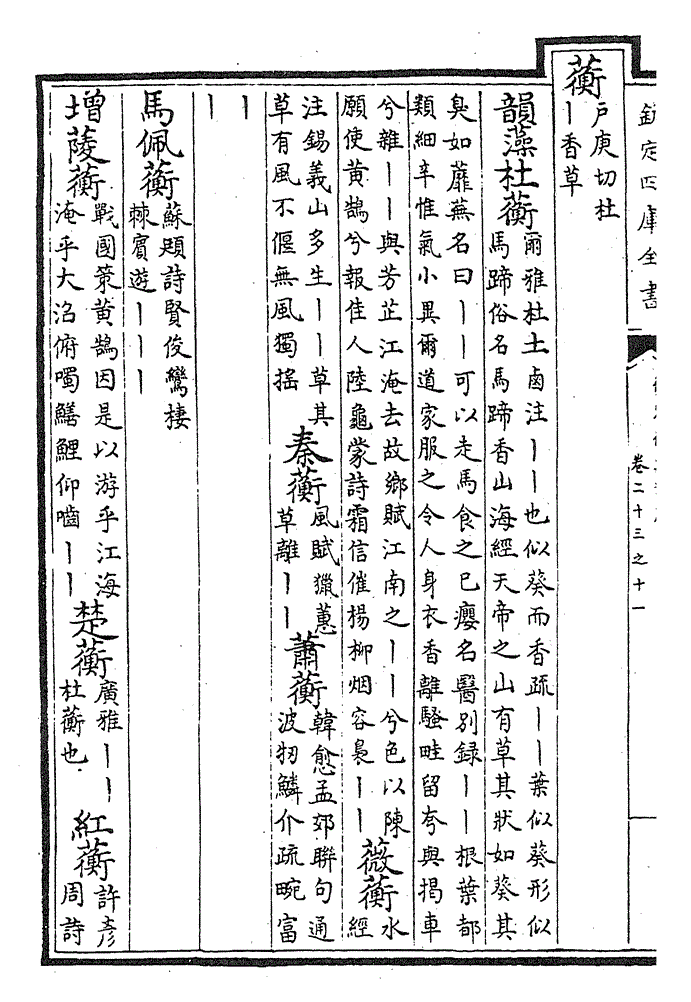 欽定四庫全書
卷二十三之十一
蘅
戶庚切杜
丨香草
韻藻杜蘅
爾雅杜土鹵注丨丨也似葵而香疏丨丨葉似葵形似
馬蹄俗名馬蹄香山海經天帝之山有草其狀如葵其
臭如蘼蕪名曰丨丨可以走馬食之已癭名醫別録丨丨根葉都
類細辛惟氣小異爾道家服之令人身衣香離騷畦留夷與揭車
兮雜丨丨與芳芷江淹去故鄉賦江南之丨丨兮色以陳
願使黄鵠兮報佳人陸龜蒙詩霜信催楊柳烟容裊丨丨
薇蘅
水
經
注錫義山多生丨丨草其
草有風不偃無風獨摇
秦蘅
風賦獵蕙
草離丨丨
蕭蘅
韓愈孟郊聯句通
波牣鱗介疏畹富
丨
丨
馬佩蘅
蘇頲詩賢俊鸞棲
棘賓遊丨丨丨
增蔆蘅
戰國策黄鵠因是以游乎江海
淹乎大沼俯噣鱔鯉仰嚙丨丨
楚蘅
廣雅丨丨
杜蘅也
紅蘅
許彦
周詩